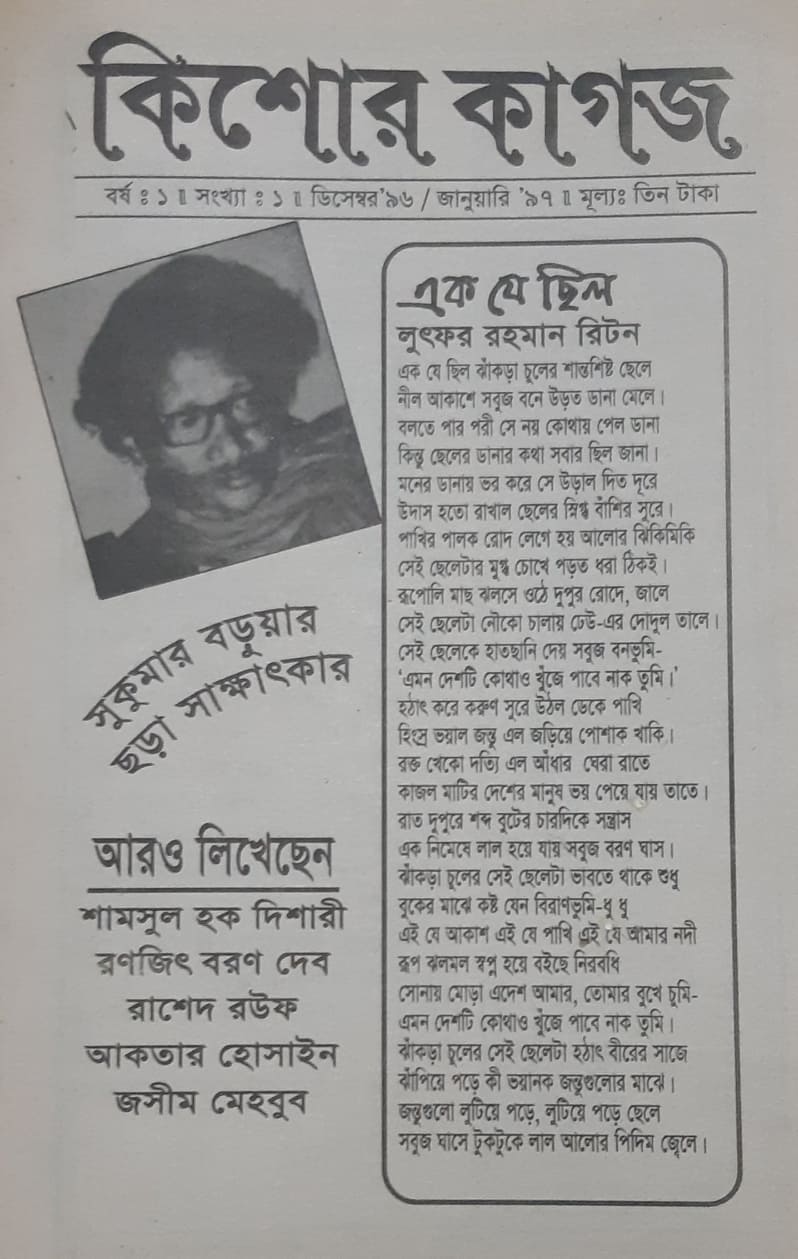 কিশোর কাগজ
বর্ষ ঃ ১ ॥ সংখ্যা ঃ ১ ॥ ডিসেম্বর’৯৬ / জানুয়ারি ’৯৭ ॥ মূল্যঃ তিন টাকা
সুকুমার বড়ুয়ার
ছড়া সাক্ষাৎকার
আরও লিখেছেন
শামসুল হক দিশারী
রণজিৎ বরণ দেব
রাশেদ রউফ
আকতার হোসাইন
জসীম মেহবুব
এক যে ছিল
লুৎফর রহমান রিটন
এক যে ছিল ঝাঁকড়া চুলের শান্তশিষ্ট ছেলে
নীল আকাশে সবুজ বনে উড়ত ডানা মেলে।
বলতে পার পরী সে নয় কোথায় পেল ডানা
কিন্তু ছেলের ডানার কথা সবার ছিল জানা।
মনের ডানায় ভর করে সে উড়াল দিত দূরে
উদাস হতো রাখাল ছেলের স্নিগ্ধ বাঁশির সুরে।
পাখির পালক রোদ লেগে হয় আলোর ঝিকিমিকি
সেই ছেলেটার মুগ্ধ চোখে পড়ত ধরা ঠিকই।
রূপোলি মাছ ঝলসে ওঠে দুপুর রোদে, জালে
সেই ছেলেটা নৌকো চালায় ঢেউ-এর দোদুল তালে।
সেই ছেলেকে হাতছানি দেয় সবুজ বনভূমি-
‘এমন দেশটি কোথাও খুঁজে পাবে নাক তুমি।’
হঠাৎ করে করুণ সুরে উঠল ডেকে পাখি
হিংস্র ভয়াল জন্তু এল জড়িয়ে পোশাক খাকি।
রক্ত খেকো দত্যি এল আঁধার ঘেরা রাতে
কাজল মাটির দেশের মানুষ ভয় পেয়ে যায় তাতে।
রাত দুপুরে শব্দ বুটের চারদিকে সন্ত্রাস
এক নিমেষে লাল হয়ে যায় সবুজ বরণ ঘাস।
ঝাঁকড়া চুলের সেই ছেলেটা ভাবতে থাকে শুধু
বুকের মাঝে কষ্ট যেন বিরাণভূমি-ধু ধু
এই যে আকাশ এই যে পাখি এই যে আমার নদী
রূপ ঝলমল স্বপ্ন হয়ে বইছে নিরবধি
সোনায় মোড়া এদেশ আমার, তোমার মুখে চুমি-
এমন দেশটি কোথাও খুঁজে পাবে নাক তুমি।
ঝাঁকড়া চুলের সেই ছেলেটা হঠাৎ বীরের সাজে
ঝাঁপিয়ে পড়ে কী ভয়ানক জন্তুগুলোর মাঝে।
জন্তুগুলো লুটিয়ে পড়ে, লুটিয়ে পড়ে ছেলে
সবুজ ঘাসে টুকটুকে লাল আলোর পিদিম জ্বেলে।